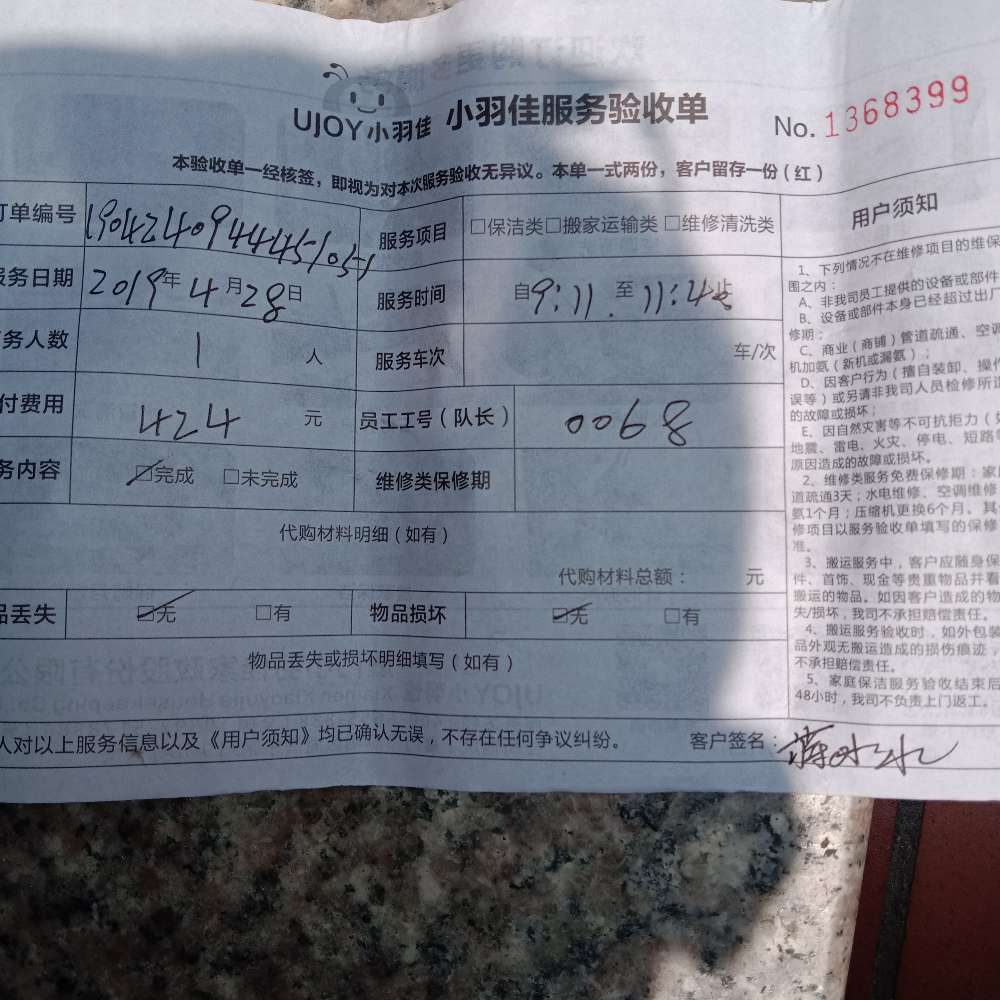 UJOY小羽佳 小羽佳服务验收单 No. 1368399
本验收单一经核签，即视为对本次服务验收无异议。本单一式两份，客户留存一份（红）
订单编号 服务项目 □保洁类□搬家运输类 □维修清洗类
服务日期 2019年4月28日 服务时间 自9:11 至 11:45止
务人数 1 人 服务车次 车/次
付费用 424 元 员工工号（队长） 0068
务内容 ☑完成 □未完成 维修类保修期
代购材料明细（如有）
代购材料总额： 元
品丢失 ☑无 □有 物品损坏 ☑无 □有
物品丢失或损坏明细填写（如有）
人对以上服务信息以及《用户须知》均已确认无误，不存在任何争议纠纷。 客户签名：
用户须知
1、下列情况不在维修项目的维保
围之内：
A、非我司员工提供的设备或部件
B、设备或部件本身已经超过出厂
修期；
C、商业（商铺）管道疏通、空调
机加氨（新机或漏氨）；
D、因客户行为（擅自装卸、操作
误等）或另请非我司人员检修所造
的故障或损坏；
E、因自然灾害等不可抗拒力（如
地震、雷电、火灾、停电、短路等
原因造成的故障或损坏。
2、维修类服务免费保修期：家庭
道疏通3天；水电维修、空调维修
氨1个月；压缩机更换6个月。其
修项目以服务验收单填写的保修
准。
3、搬运服务中，客户应随身保
件、首饰、现金等贵重物品并看
搬运的物品。如因客户造成的物
失/损坏，我司不承担赔偿责任。
4、搬运服务验收时，如外包装
品外观无搬运造成的损伤痕迹，
不承担赔偿责任。
5、家庭保洁服务验收结束后
48小时，我司不负责上门返工。